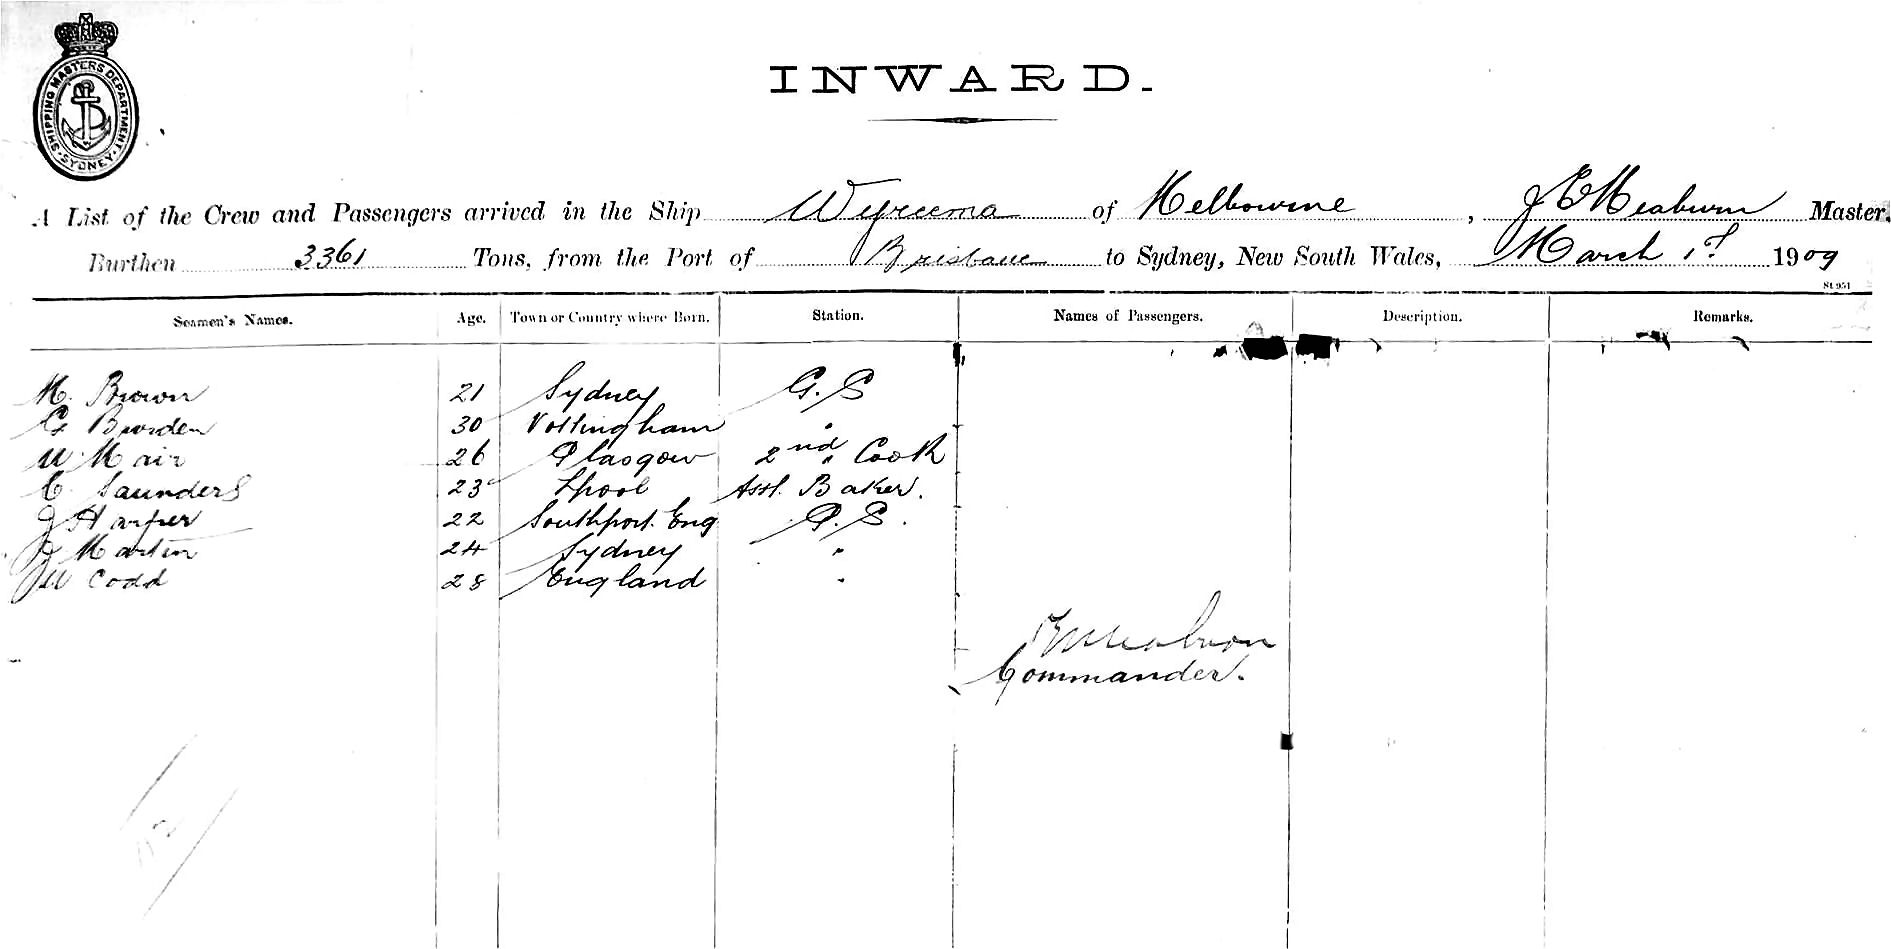 SHIPPING MASTERS DEPARTMENT
SYDNEY
INWARD.
A List of the Crew and Passengers arrived in the Ship Wyreema of Melbourne, J E Meaburn Master,
Burthen 3361 Tons, from the Port of Brisbane to Sydney, New South Wales, March 1st 1909
St 951
Seamen's Names. Age. Town or Country where Born. Station. Names of Passengers. Description. Remarks.
M. Brown 21 Sydney G.S
G Burden 30 Nottingham "
W Mair 26 Glasgow 2nd " Cook
C. Saunders 23 Lpool Asst. Baker.
J Harper 22 Southport. Eng G.S.
J Martin 24 Sydney "
J W Codd 28 England "
Commander.